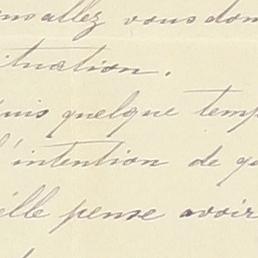 allez vous don
ituation.
uis quelque temp
l'intention de qu
elle pense avoir